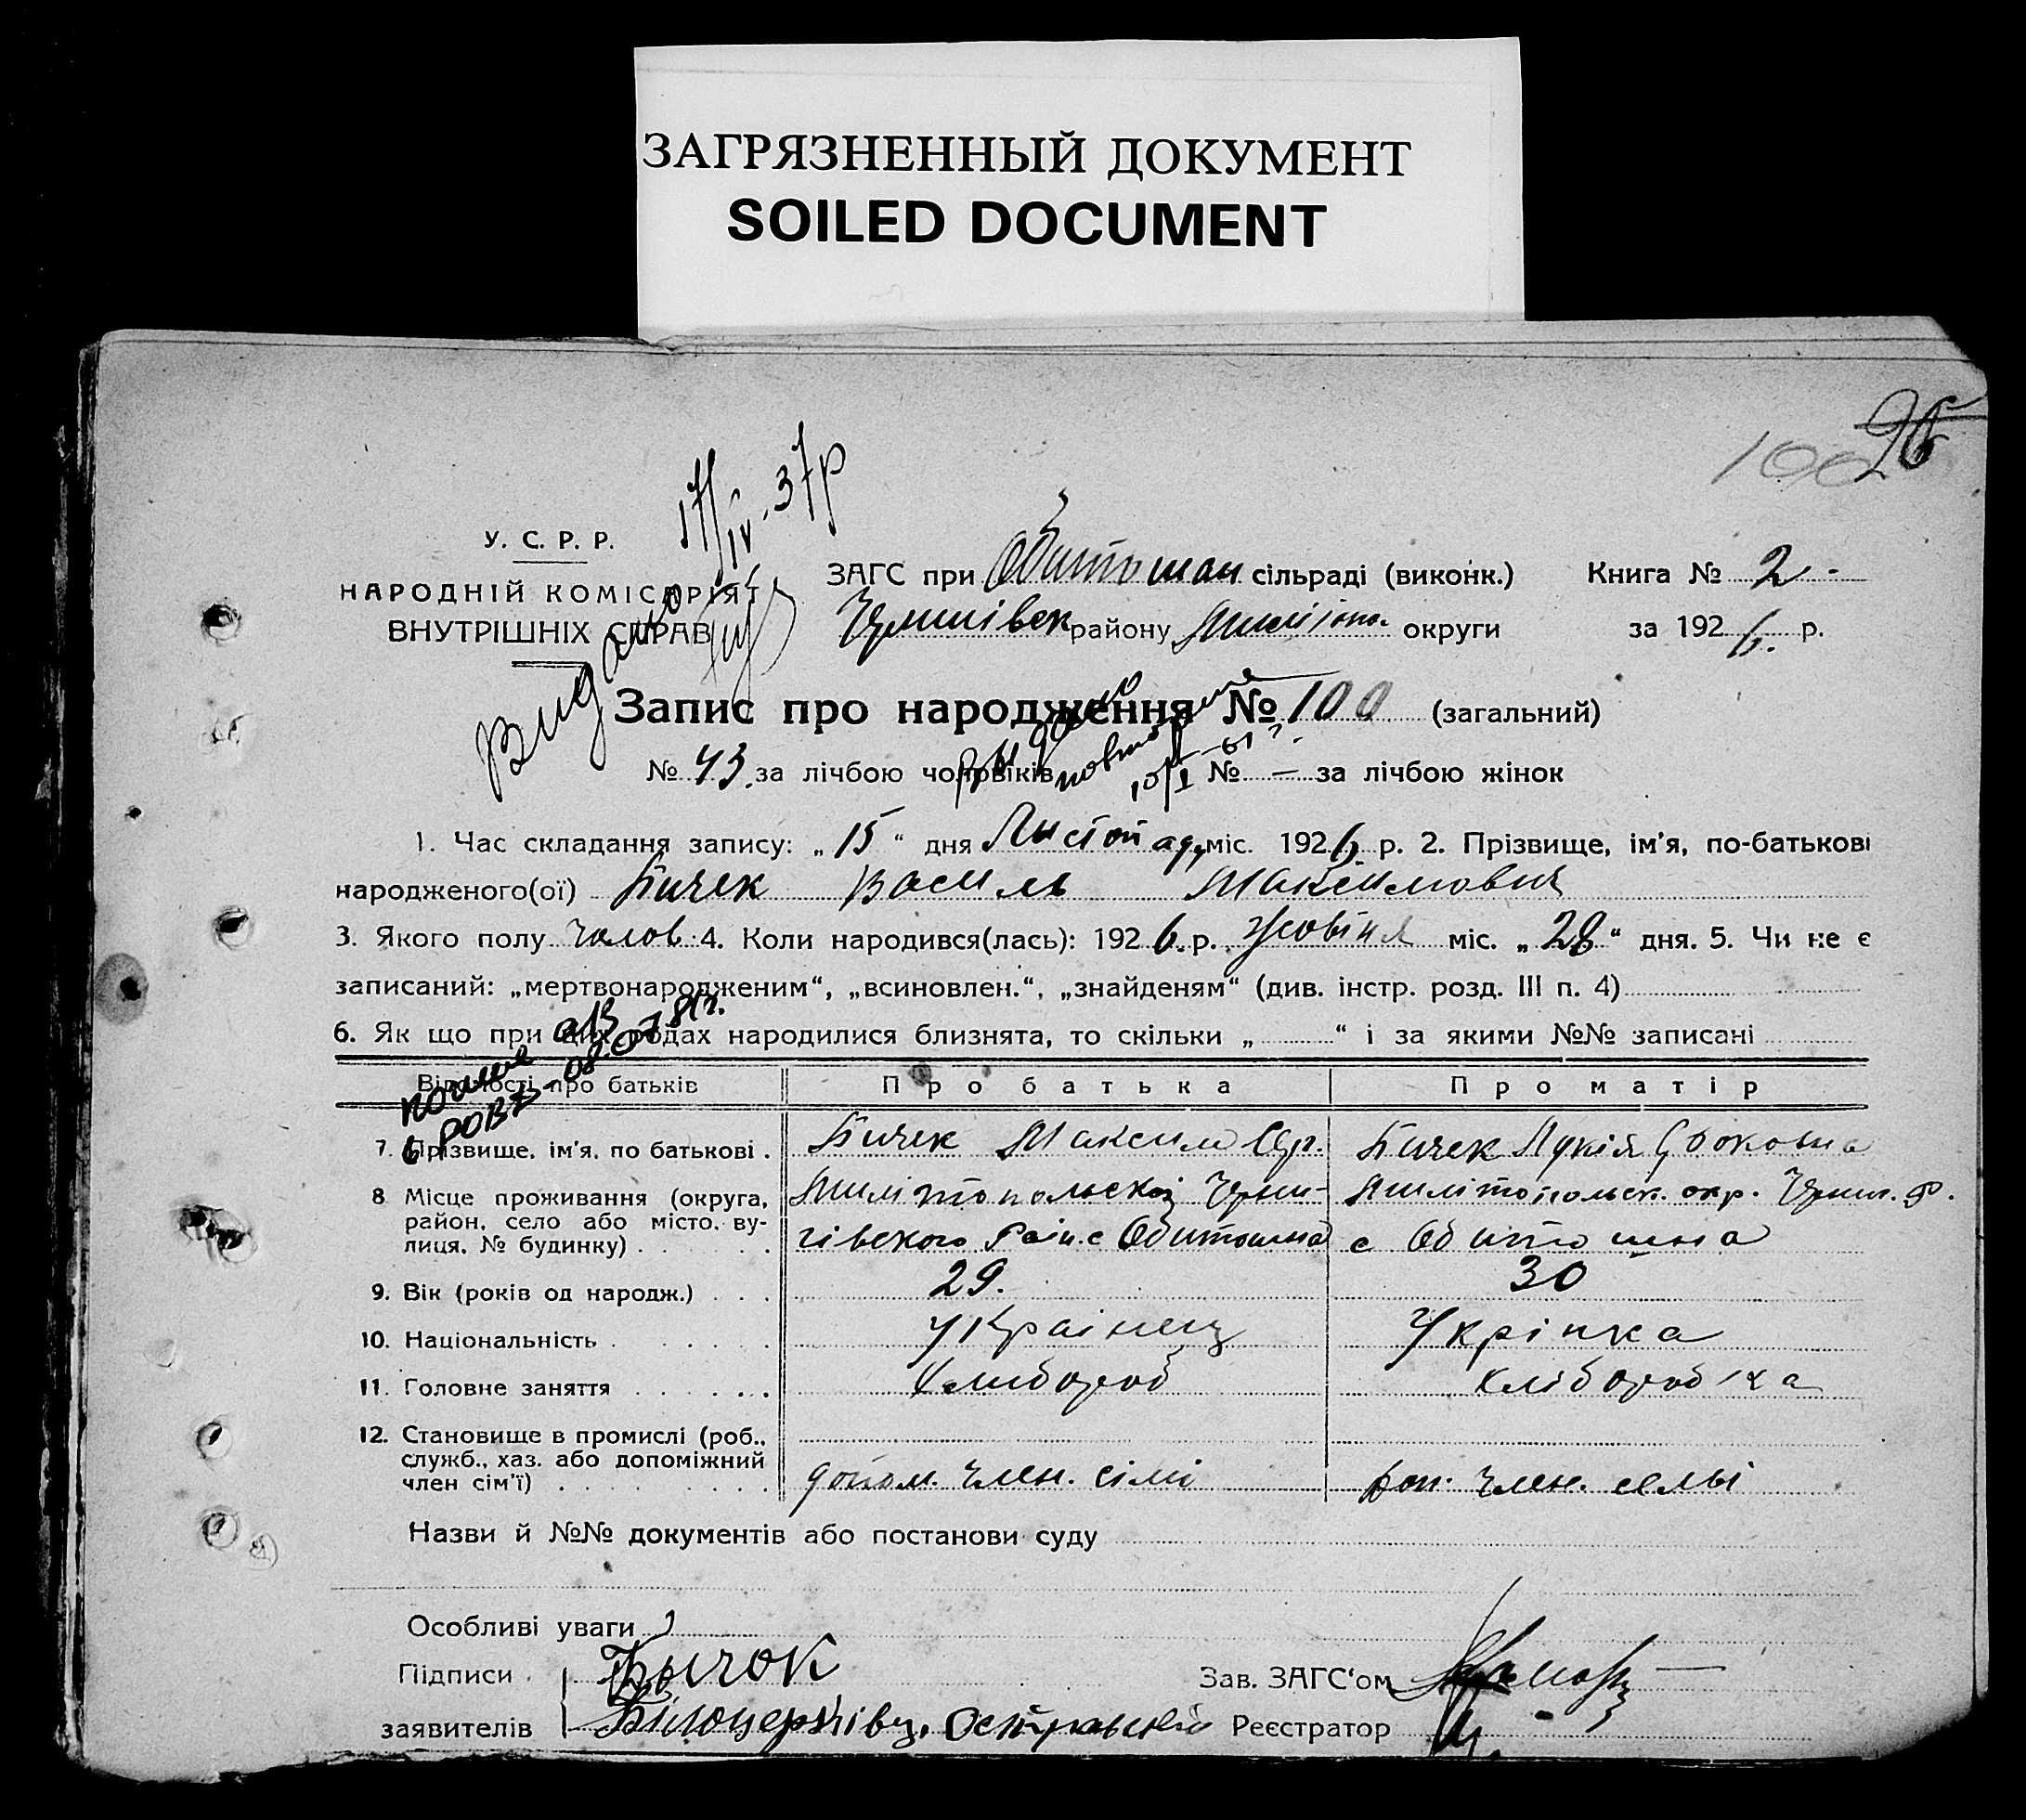 ЗАГРЯЗНЕННЫЙ ДОКУМЕНТ
SOILED DOCUMENT
100 26
17/IV. 37р
Видано
У. С. Р. Р.
НАРОДНІЙ КОМІСАРІЯТ
ВНУТРІШНІХ СПРАВ
ЗАГС при Обиточан сільраді (виконк.) Книга № 2.
району округи за 1926. р.
Запис про народження № 100 (загальний)
№ 43. за лічбою чоловіків № — за лічбою жінок
1. Час складання запису: „15“ дня Листопаду міс. 1926 р. 2. Прізвище, ім'я, по-батькові
народженого(ої) Бичек Василь Максимович
3. Якого полу Чолов. 4. Коли народився(лась): 1926. р. Жовтня міс. „28“ дня. 5. Чи не є
записаний: „мертвонародженим“, „всиновлен.“, „знайденям“ (див. інстр. розд. III п. 4)
6. Як що при цих родах народилися близнята, то скільки „ “ і за якими №№ записані
Відомості про батьків Про батька Про матір
7. Прізвище, ім'я, по батькові . Бичек Максим Бичек Лукія
8 Місце проживання (округа, район, село або місто, вулиця, № будинку) Милітопольскої Черни- Милітопольск. окр. Черниг. р.
гівского Раін. с Обиточна с Обиточна
9. Вік (років од народж.) 29. 30
10. Національність Украінец Укрінка
11. Головне заняття Хлибороб хліборобка
12. Становище в промислі (роб., служб., хаз. або допоміжний член сім'ї) допом. член. сімі Доп. член. семьі
Назви й №№ документів або постанови суду
Особливі уваги
Підписи Бычок Зав. ЗАГС'ом
заявителів Білоцерківц. Реєстратор